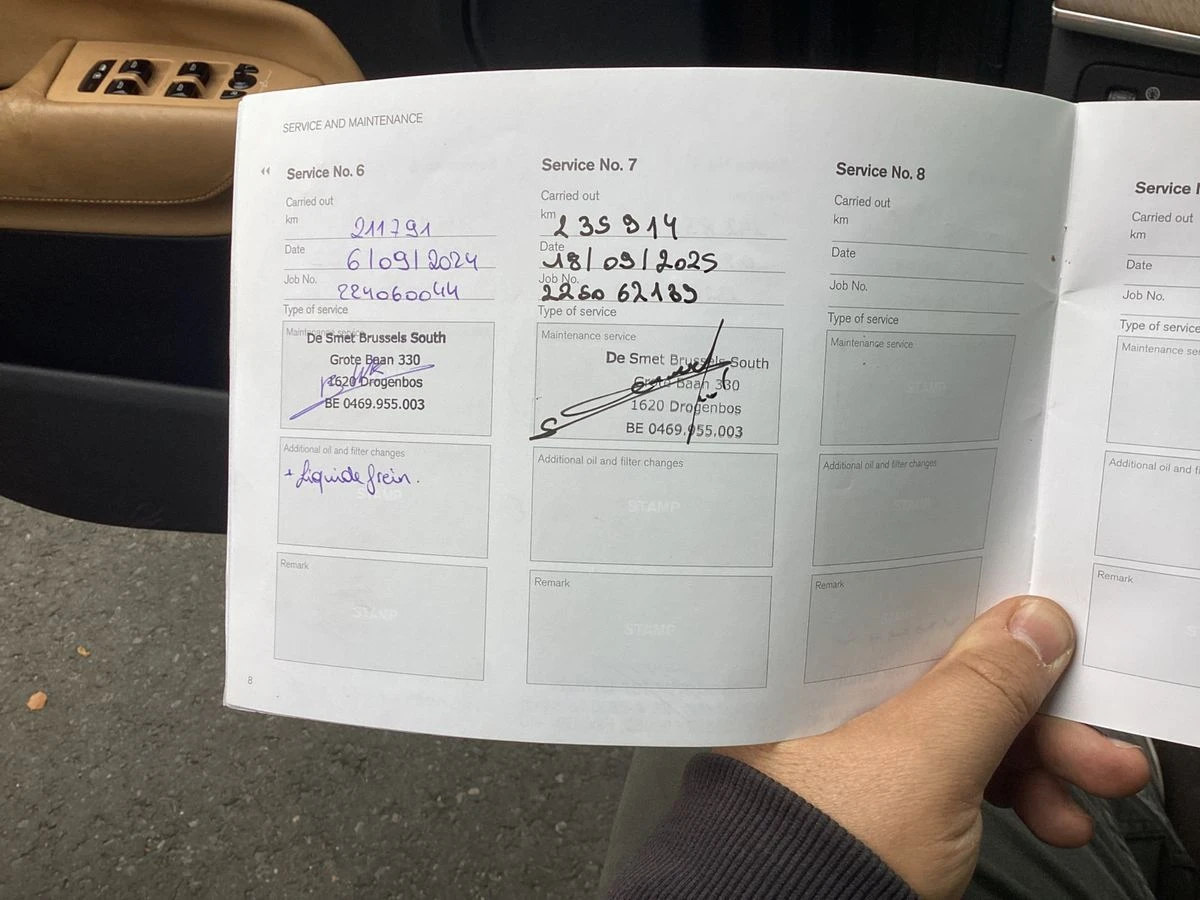 SERVICE AND MAINTENANCE
Service No. 6
Carried out
km 211791
Date 6/09/2024
Job No. 224060044
Type of service
Maintenance service
De Smet Brussels South
Grote Baan 330
1620 Drogenbos
BE 0469.955.003
Additional oil and filter changes
+ Liquide frein.
STAMP
Remark
STAMP
8
Service No. 7
Carried out
km 235914
Date 18/09/2025
Job No.
Type of service
Maintenance service
De Smet Brussels South
Grote Baan 330
1620 Drogenbos
BE 0469.955.003
Additional oil and filter changes
STAMP
Remark
STAMP
Service No. 8
Carried out
km
Date
Job No.
Type of service
Maintenance service
STAMP
Additional oil and filter changes
STAMP
Remark
Service
Carried out
km
Date
Job No.
Type of service
Maintenance
Additional oil and
Remark